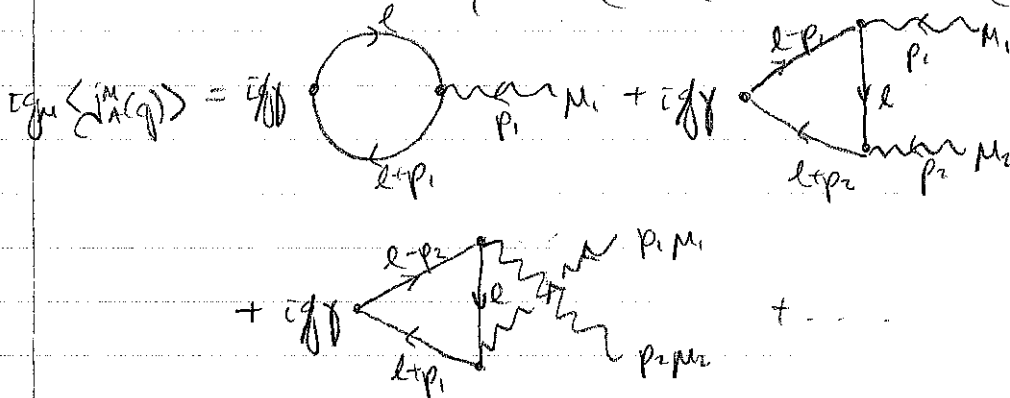 iq_μ⟨j^μ_A(q)⟩ = iq̸γ ℓ ℓ+p₁ p₁ μ₁ + iq̸γ ℓ-p₁ ℓ ℓ+p₂ p₁ μ₁ p₂ μ₂
+ iq̸γ ℓ-p₂ ℓ ℓ+p₁ p₁ μ₁ p₂ μ₂ + ....